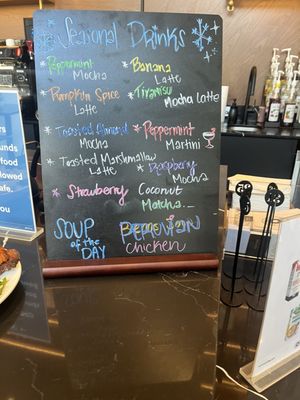 Seasonal Drinks
* Peppermint Mocha
* Banana Latte
* Pumpkin Spice Latte
* Tiramisu Mocha Latte
* Toasted Almond Mocha
* Peppermint Martini
* Toasted Marshmallow Latte
* Raspberry Mocha
* Strawberry Coconut Matcha...
SOUP of the DAY
PERUVIAN chicken